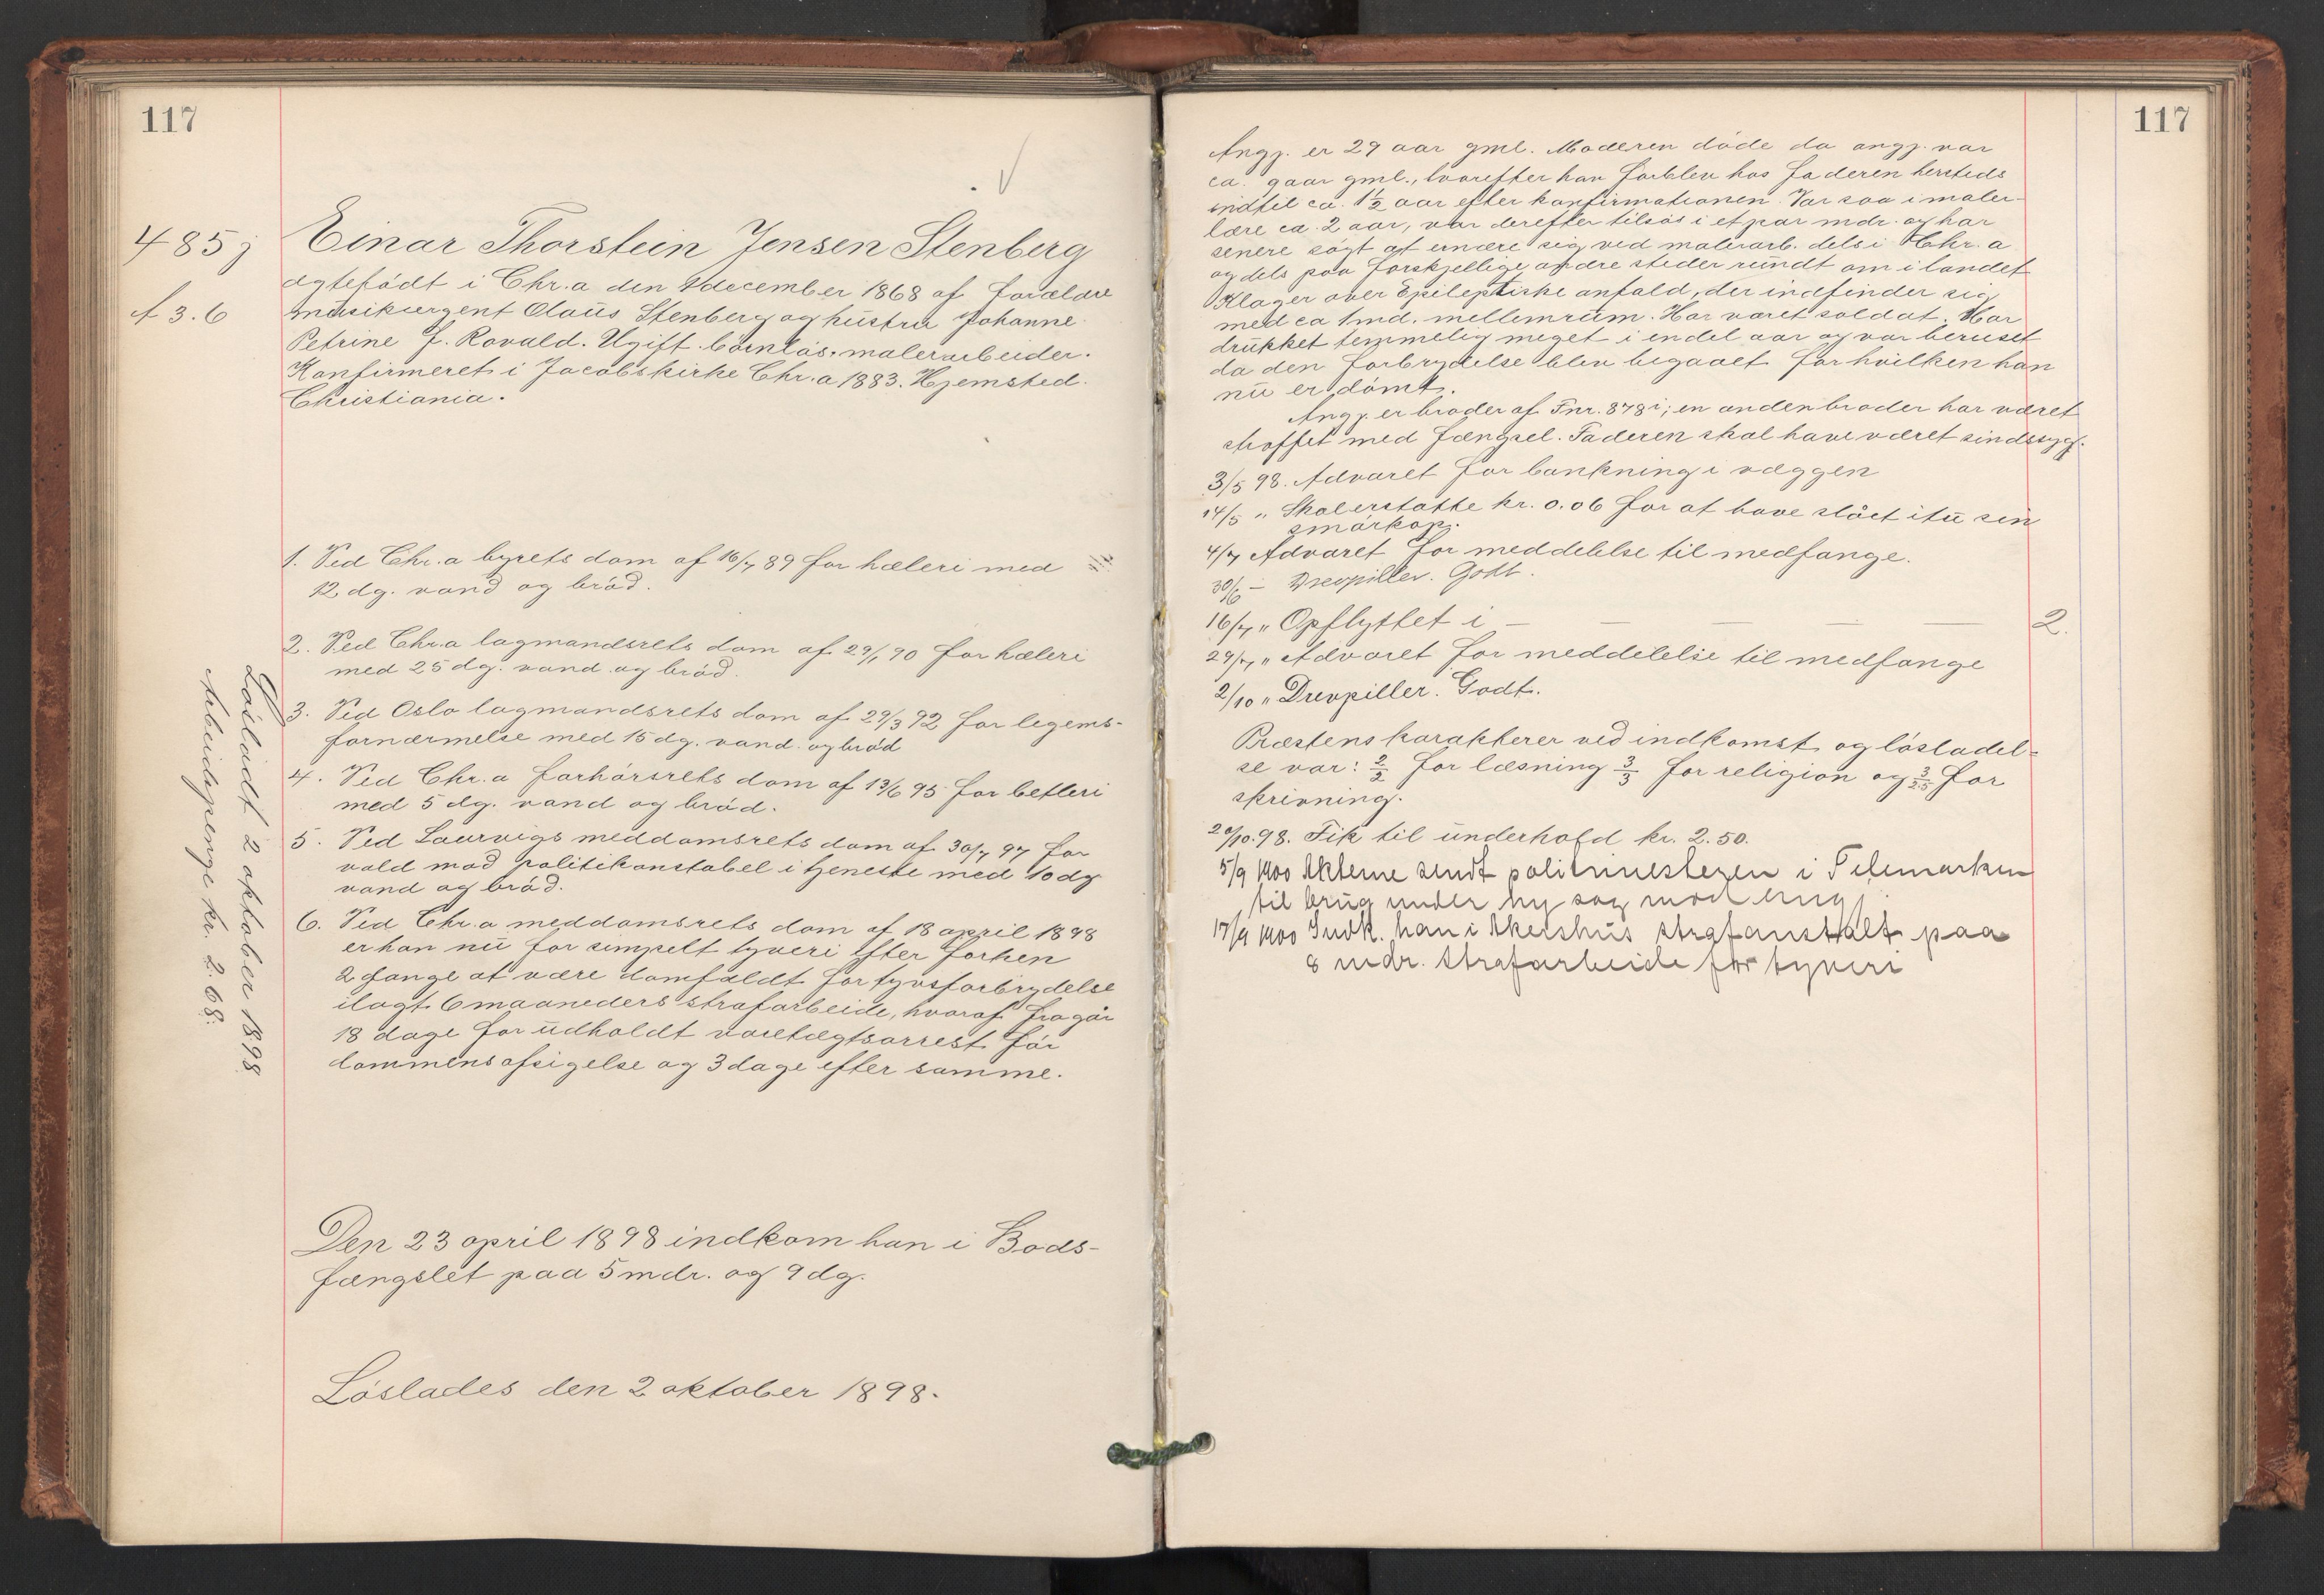 117
485 j
A 3.6
Einar Thorstein Jensen Stenberg
ægtefödt i Chr.a den 1 december 1868 af forældre
musikurgent Olaüs Stenberg og hüstrü Johanne
Petrine J. Rovald. Ugift. barnlös. malerarbeider.
Konfirmeret i Jacobskirke Chr.a 1883. Hjemsted
Christiania.
1. Ved Chr.a byrets dom af 16/7 89 for hæleri med
12 dg. vand og bröd.
2. Ved Chr.a lagmandsrets dom af 29/1 90 for hæleri
med 25 dg. vand og bröd.
3. Ved Oslo lagmandsrets dom af 29/3 92 for legems-
fornærmelse med 15 dg. vand og bröd
4. Ved Chr.a forhörsrets dom af 13/6 95 for betleri
med 5 dg. vand og bröd.
5. Ved Laurvigs meddomsrets dom af 30/7 97 for
vold mod politikonstabel i tjeneste med 10 dg
vand og bröd.
6. Ved Chr.a meddomsrets dom af 18 april 1898
er han nü for simpelt tyveri efter forhen
2 gange at være domfældt for tyvsforbrydelse
ilagt 6 maaneders strafarbeide, hvoraf fragår
18 dage for üdholdt varetægtsarrest för
dommens afsigelse og 3 dage efter samme.
Lösladt 2 oktober 1898
Arbeidspenge kr. 2.68.
Den 23 april 1898 indkom han i Bods-
fængslet paa 5 mdr. og 9 dg.
Löslades den 2 oktober 1898.
117
Angj. er 29 aar gml. Moderen döde da angj. var
ca. 9 aar gml., hvorefter han forblev hos faderen hersteds
indtil ca. 1½ aar efter konfirmationen. Var saa i maler-
lære ca. 2 aar, var derefter tilsös i et par mdr. og har
senere sögt at ernære sig ved malerarb. dels i Chr.a
og dels paa forskjellige andre steder ründt om i landet
Klager over Epileptiske anfald, der indfinder sig
med ca 1 md. mellemrüm. Har været soldat. Har
drükket temmelig meget i endel aar og var beruset
da den forbrydelse blev begaaet for hvilken han
nü er dömt.
Angj. er broder af Fnr. 878 i; en anden broder har været
straffet med fængsel. Faderen skal have været sindssyg.
3/5 98. Advaret for bankning i væggen
14/5 " Skal erstatte kr. 0.06 for at have slået itü sin
smörkop.
4/7 Advaret for meddelelse til medfange.
30/6 – Drevpiller. Godt.
16/7 " Opflyttet i — — — — — 2.
29/7 " Advaret for meddelelse til medfange
2/10 " Drevpiller. Godt.
Præstens karakterer ved indkomst og lösladel-
se var: 2/2 for læsning 3/3 for religion og 3/2.5 for
skrivning.
20/10.98. Fik til ünderhold kr. 2.50.
5/9 1900 Akterne sendt politimesteren i Telemarken
til brüg under ny sag mod ang.
17/9 1900 Indk. han i Akershüs strafanstalt paa
8 mdr. strafarbeide for tyveri